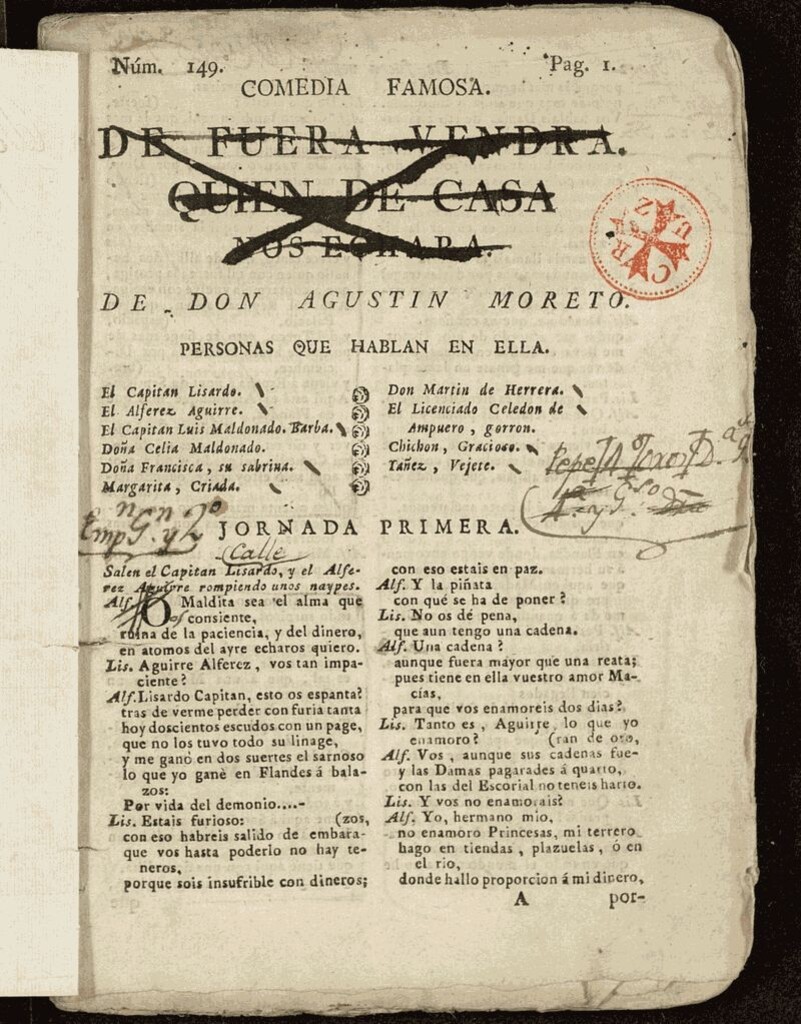 Núm. 149.
Pag. 1.
COMEDIA FAMOSA.
DE FUERA VENDRA.
QUIEN DE CASA
NOS ECHARA.
DE DON AGUSTIN MORETO.
PERSONAS QUE HABLAN EN ELLA.
El Capitan Lisardo.
El Alferez Aguirre.
El Capitan Luis Maldonado. Barba.
Doña Celia Maldonado.
Doña Francisca, su sabrina.
Margarita, Criada.
Don Martin de Herrera.
El Licenciado Celedon de
Ampuero, gorron.
Chichon, Gracioso.
Yañez, Vejete.
JORNADA PRIMERA.
Calle
Salen el Capitan Lisardo, y el Alfe-
rez Aguirre rompiendo unos naypes.
Alf. O Maldita sea el alma que
os consiente,
ruina de la paciencia, y del dinero,
en atomos del ayre echaros quiero.
Lis. Aguirre Alferez, vos tan impa-
ciente?
Alf. Lisardo Capitan, esto os espanta?
tras de verme perder con furia tanta
hoy doscientos escudos con un page,
que no los tuvo todo su linage,
y me ganò en dos suertes el sarnoso
lo que yo ganè en Flandes á bala-
zos:
Por vida del demonio....-
Lis. Estais furioso: (zos,
con eso habreis salido de embara-
que vos hasta poderlo no hay te-
neros,
porque sois insufrible con dineros;
con eso estais en paz.
Alf. Y la piñata
con qué se ha de poner?
Lis. No os dé pena,
que aun tengo una cadena.
Alf. Una cadena?
aunque fuera mayor que una reata;
pues tiene en ella vuestro amor Ma-
cías,
para que vos enamoreis dos dias?
Lis. Tanto es, Aguirre, lo que yo
enamoro? (ran de oro,
Alf. Vos, aunque sus cadenas fue-
y las Damas pagarades á quarto,
con las del Escorial no teneis harto.
Lis. Y vos no enamorais?
Alf. Yo, hermano mio,
no enamoro Princesas, mi terrero
hago en tiendas, plazuelas, ó en
el rio,
donde hallo proporcion á mi dinero,
A
por-